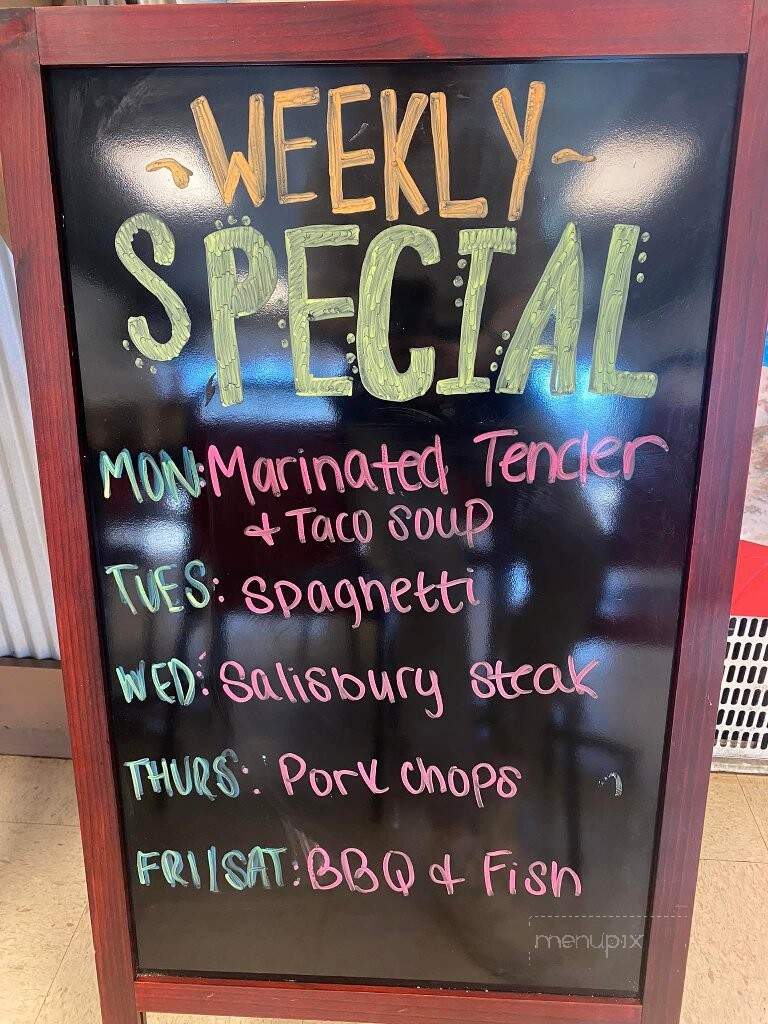 ~WEEKLY~
SPECIAL
MON: Marinated Tender
& Taco Soup
TUES: Spaghetti
WED: Salisbury Steak
THURS: Pork Chops
FRI/SAT: BBQ & Fish
menupix